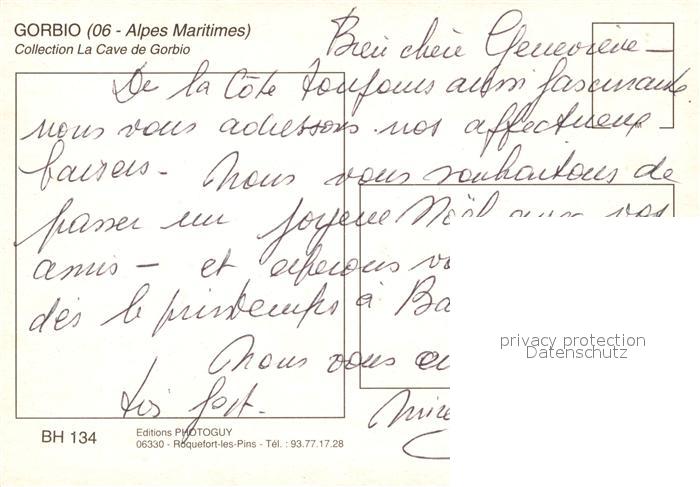 GORBIO (06 - Alpes Maritimes)
Collection La Cave de Gorbio
Bien chère Geneviève -
De la Côte toujours aussi fascinante
nous vous adressons nos affectueux
baisers - Nous vous souhaitons de
passer un joyeux Noël avec vos
amis - et espérons
dès le printemps à Ba
Nous vous
très fort.
privacy protection
Datenschutz
BH 134
Editions PHOTOGUY
06330 - Roquefort-les-Pins - Tél. : 93.77.17.28